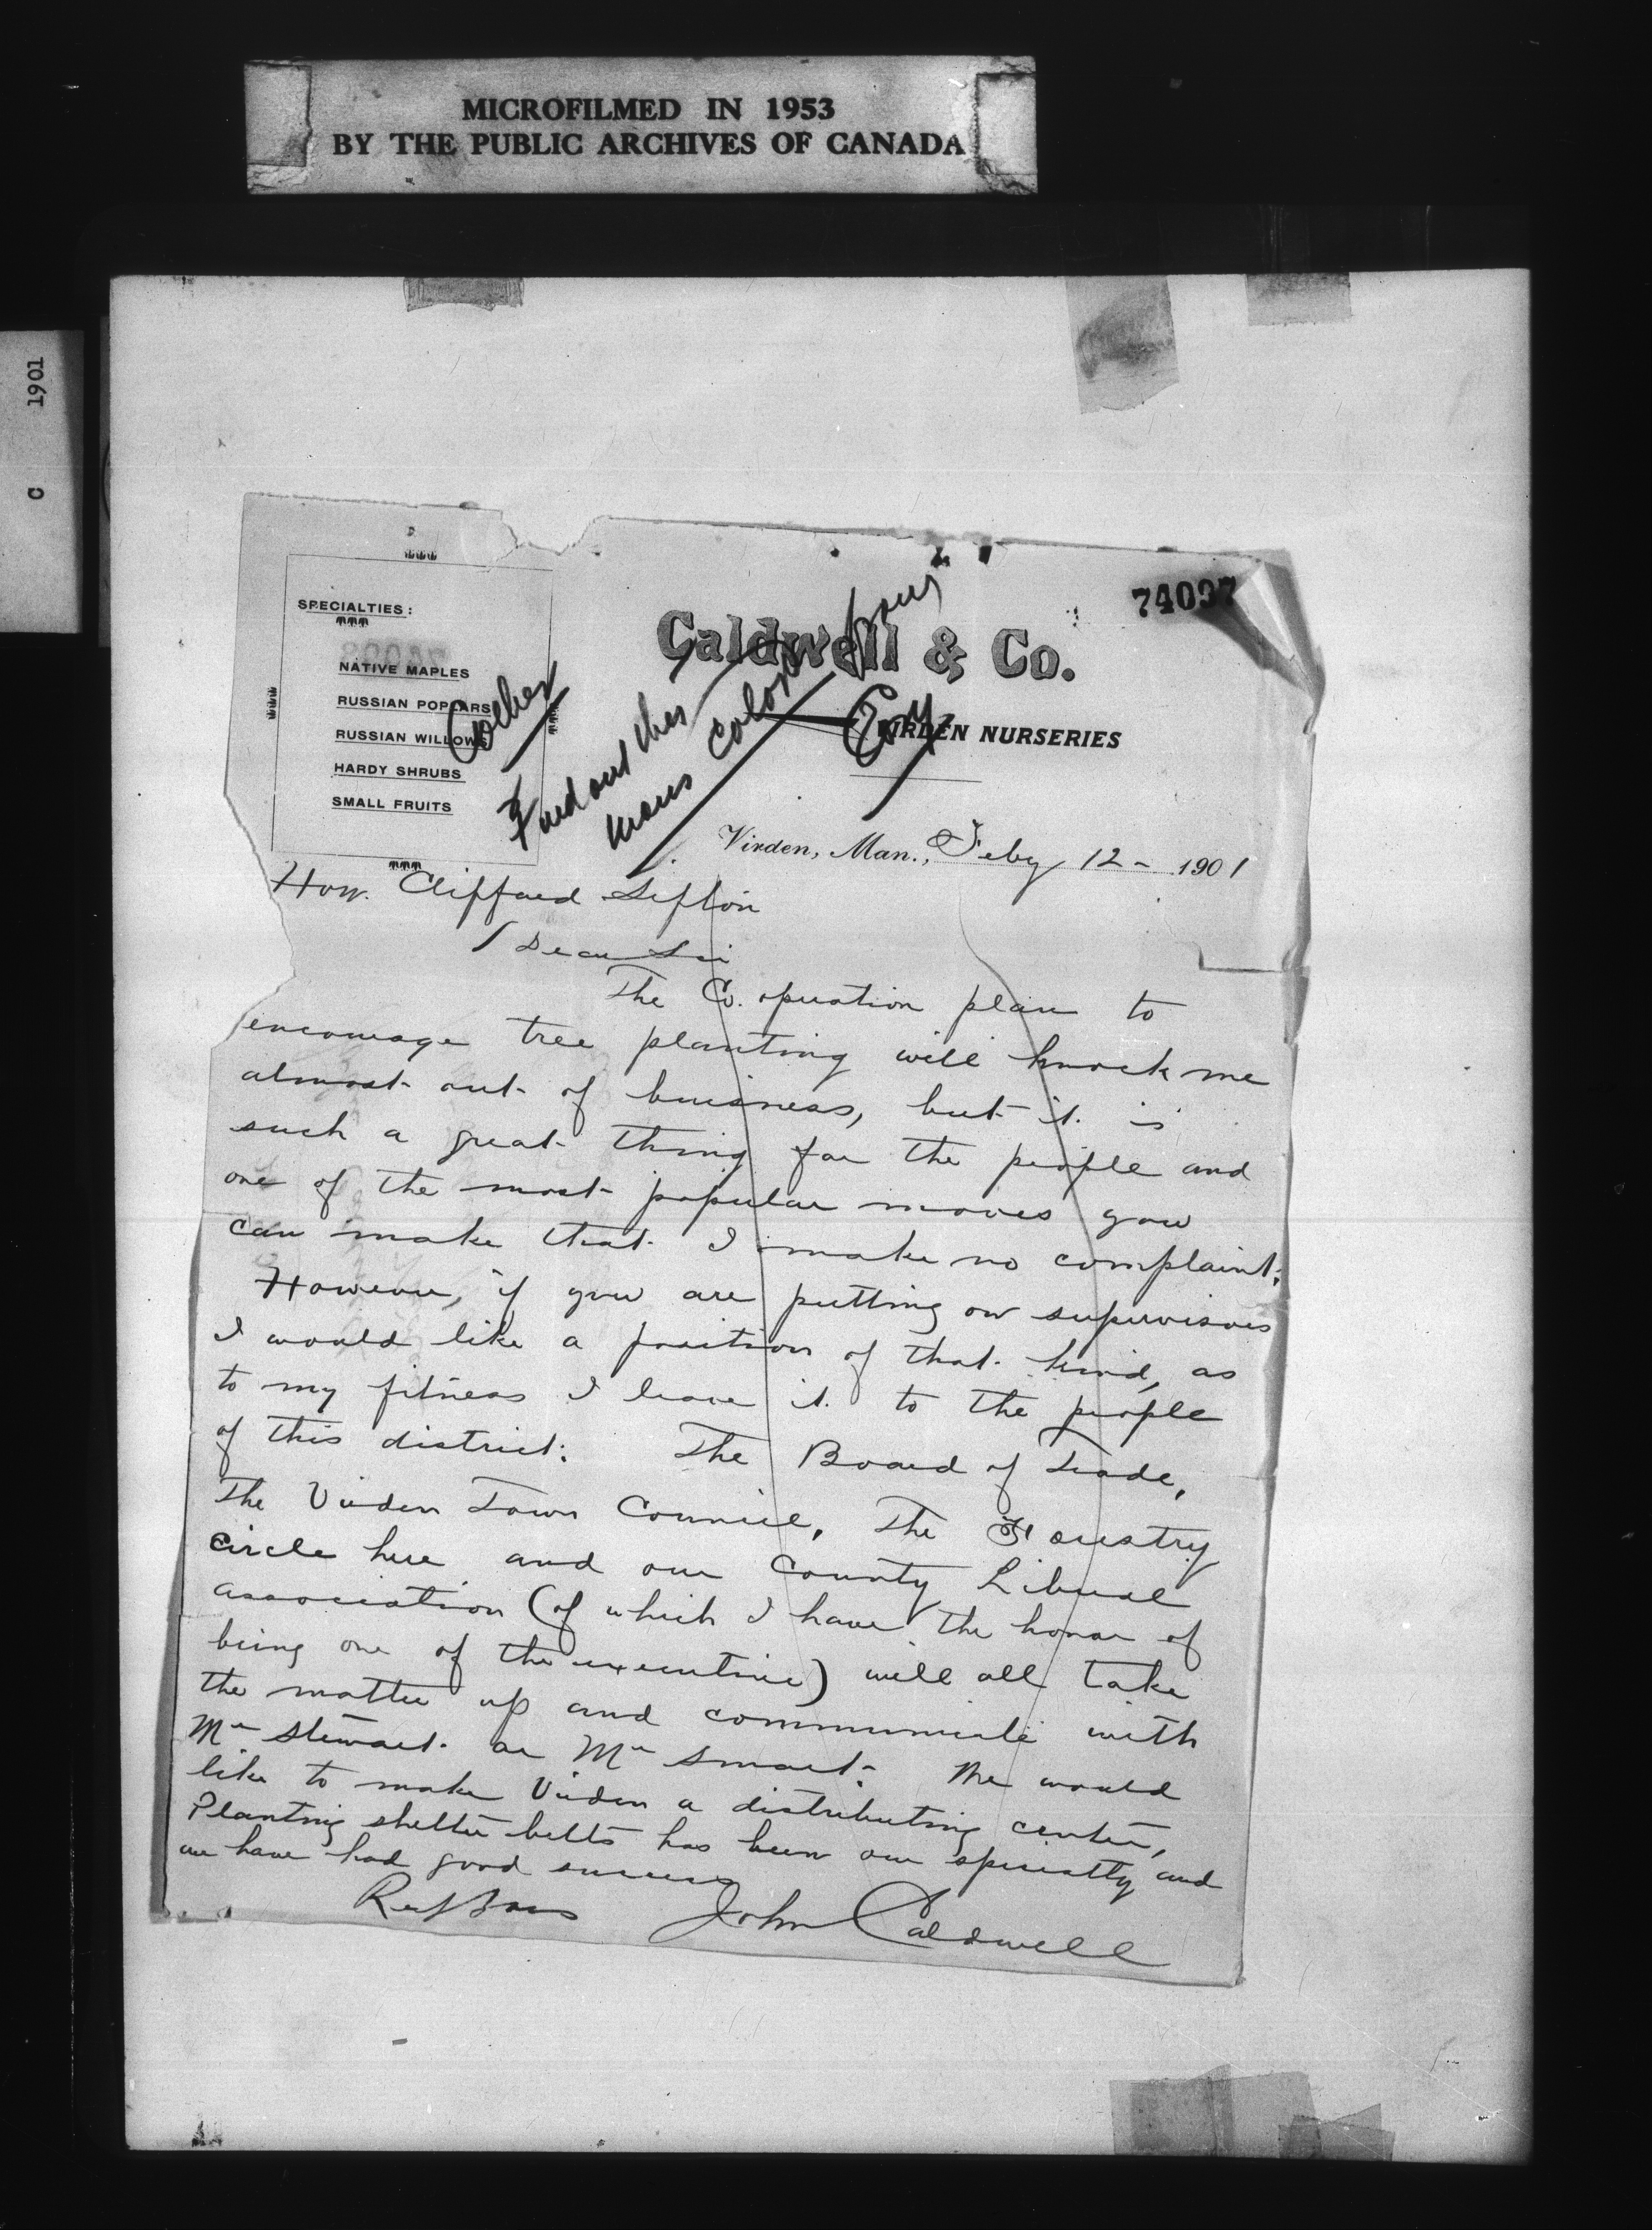 MICROFILMED IN 1953
BY THE PUBLIC ARCHIVES OF CANADA
C 1901
74097
SPECIALTIES:
NATIVE MAPLES
RUSSIAN POPLARS
RUSSIAN WILLOWS
HARDY SHRUBS
SMALL FRUITS
Caldwell & Co.
VIRDEN NURSERIES
Find out this
mans color from
Virden, Man., Feby 12 - 1901
Hon. Clifford Sifton
Dear Sir
The Co. operation plan to
encourage tree planting will knock me
almost out of buisness, but it is
such a great thing for the people and
one of the most popular moves you
can make that I make no complaint.
However, if you are putting on supervisors
I would like a position of that kind, as
to my fitness I leave it to the people
of this district. The Board of Trade,
The Virden Town Council, The Forestry
circle here and our County Liberal
association (of which I have the honor of
being one of the executive) will all take
the matter up and communicate with
Mr Stewart or Mr Smart. We would
like to make Virden a distributing center,
Planting shelter belts has been our specialty and
we have had good success
Resp yours John Caldwell